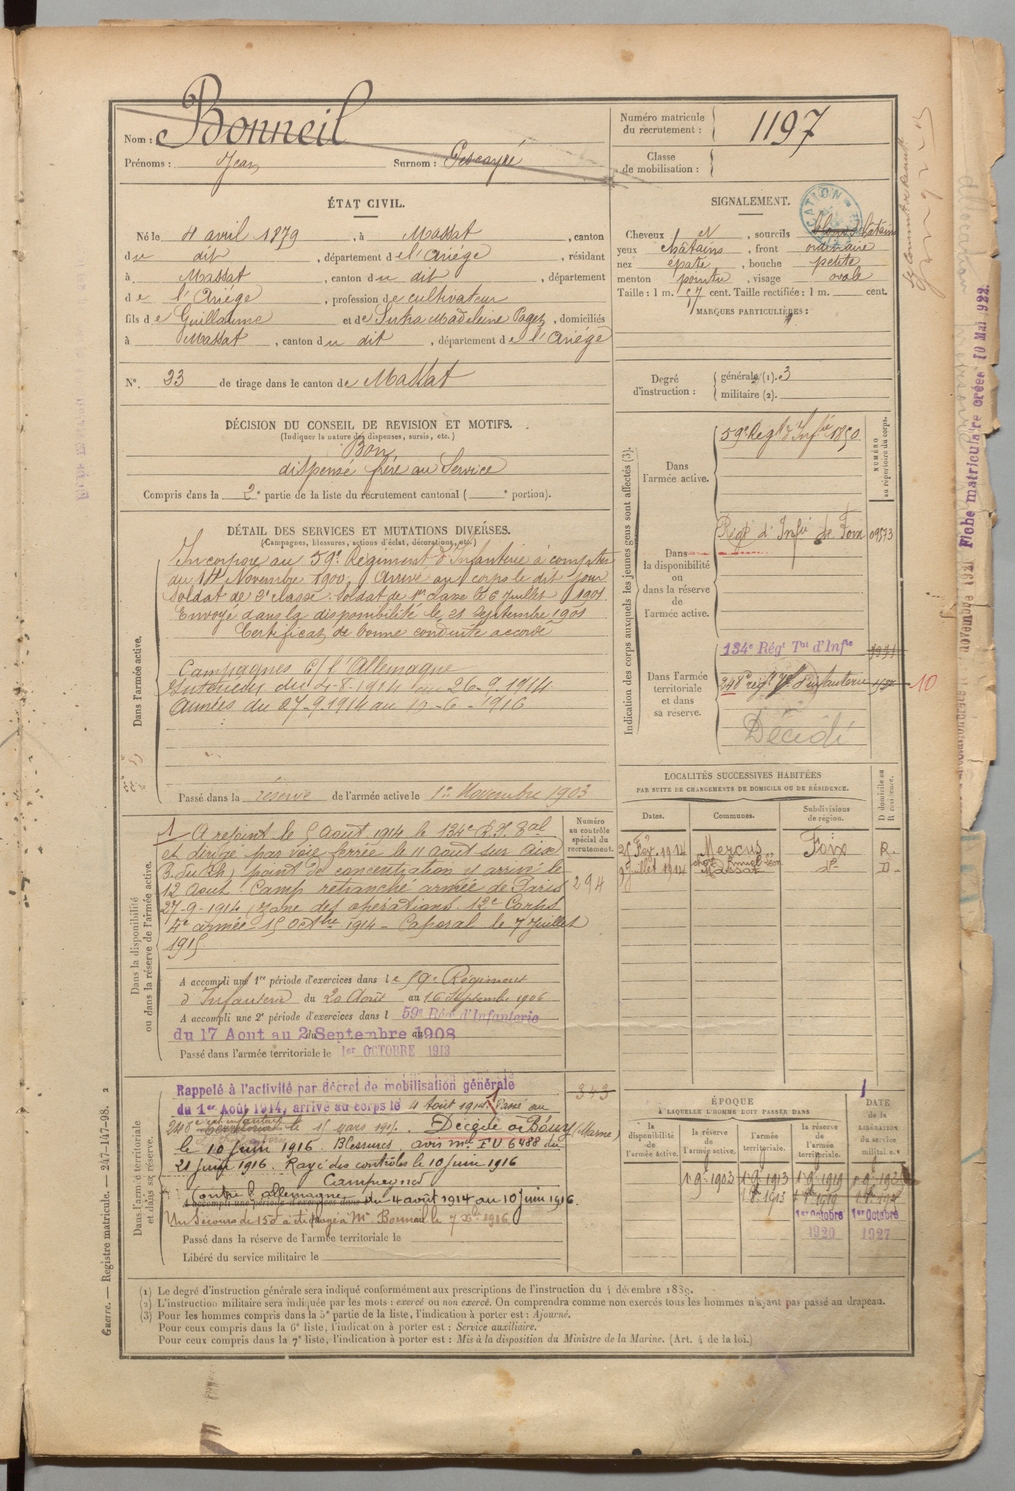 Nom : Bonneil
Prénoms : Jean Surnom :
Numéro matricule du recrutement : 1197
Classe de mobilisation :
ÉTAT CIVIL.
Né le 4 avril 1879, à Massat, canton
du dit, département de l'Ariège, résidant
à Massat, canton du dit, département
de l'Ariège, profession de cultivateur
fils de Guillaume et de Madeleine Pagès, domiciliés
à Massat, canton du dit, département de l'Ariège
N° 23 de tirage dans le canton de Massat
SIGNALEMENT.
Cheveux et, sourcils châtains
yeux châtains, front ordinaire
nez épaté, bouche petite
menton pointu, visage ovale
Taille : 1 m. 57 cent. Taille rectifiée : 1 m. cent.
MARQUES PARTICULIÈRES :
Degré d'instruction : générale (1). 3
militaire (2).
DÉCISION DU CONSEIL DE REVISION ET MOTIFS.
(Indiquer la nature des dispenses, sursis, etc.)
Bon
dispensé frère au Service
Compris dans la 2e partie de la liste du recrutement cantonal ( e portion).
DÉTAIL DES SERVICES ET MUTATIONS DIVERSES.
(Campagnes, blessures, actions d'éclat, décorations, etc.)
Dans l'armée active.
Incorporé au 59e Régiment d'Infanterie à compter
du 14 Novembre 1900. Arrivé au corps le dit jour
Soldat de 2e classe. Soldat de 1re classe le 6 Juillet 1901.
Envoyé dans la disponibilité le 21 Septembre 1901
Certificat de bonne conduite accordé
Campagnes C/ l'Allemagne
Intérieur du 4-8-1914 au 26-9-1914
Armées du 27-9-1914 au 10-6-1916
Passé dans la réserve de l'armée active le 1er Novembre 1903
Indication des corps auxquels les jeunes gens sont affectés (3).
NUMÉRO au répertoire du corps.
Dans l'armée active.
59e Régt d'Infie 1850
Dans la disponibilité ou dans la réserve de l'armée active.
Régt d'Infie de Foix 09573
Dans l'armée territoriale et dans sa réserve.
134e Régt Tal d'Infie
248e régt d'infanterie 10
Décédé
LOCALITÉS SUCCESSIVES HABITÉES
PAR SUITE DE CHANGEMENTS DE DOMICILE OU DE RÉSIDENCE.
Dates. Communes. Subdivisions de région. D domicile ou R résidence.
Mercus Foix R.
1914 Massat do D.
Dans la disponibilité ou dans la réserve de l'armée active.
Numéro au contrôle spécial du recrutement.
294
A rejoint le 5 Août 1914 le 134e R.I. Tal
et dirigé par voie ferrée le 11 août sur Aix
point de concentration y arrivé le
12 Août. Camp retranché armée de Paris
27-9-1914, zone des opérations 12e Corps
4e armée 15 Octbre 1914 - Caporal le 7 Juillet
1915
A accompli une 1re période d'exercices dans le 59e Régiment
d'Infanterie du 20 Août au 16 Septembre 1906
A accompli une 2e période d'exercices dans l 59e Régt d'Infanterie
du 17 Aout au 2 Septembre 1908
Passé dans l'armée territoriale le 1er OCTOBRE 1913
Dans l'armée territoriale et dans sa réserve.
343
Rappelé à l'activité par décret de mobilisation générale
du 1er Août 1914, arrivé au corps le 4 Août 1914. Passé au
248e le 15 mars 1916. Décédé à Bouy (Marne)
le 10 Juin 1916. Blessures avis mel FU 6488 du
21 Juin 1916. Rayé des contrôles le 10 Juin 1916
Campagnes
Contre l'allemagne du 4 août 1914 au 10 Juin 1916
A accompli une période d'exercices dans
Un secours de 150 à été payé à Me Bonneil le 7 1916
Passé dans la réserve de l'armée territoriale le
Libéré du service militaire le
ÉPOQUE
A LAQUELLE L'HOMME DOIT PASSER DANS
la disponibilité de l'armée active. la réserve de l'armée active. l'armée territoriale. la réserve de l'armée territoriale. DATE de la LIBÉRATION du service militaire.
1er Octobre 1920 1er Octobre 1927
(1) Le degré d'instruction générale sera indiqué conformément aux prescriptions de l'instruction du 4 décembre 1889.
(2) L'instruction militaire sera indiquée par les mots : exercé ou non exercé. On comprendra comme non exercés tous les hommes n'ayant pas passé au drapeau.
(3) Pour les hommes compris dans la 5e partie de la liste, l'indication à porter est : Ajourné.
Pour ceux compris dans la 6e liste, l'indication à porter est : Service auxiliaire.
Pour ceux compris dans la 7e liste, l'indication à porter est : Mis à la disposition du Ministre de la Marine. (Art. 4 de la loi.)
Guerre. — Registre matricule. — 247-147-98. 2
Fiche matriculaire créée 10 Mai 1922.